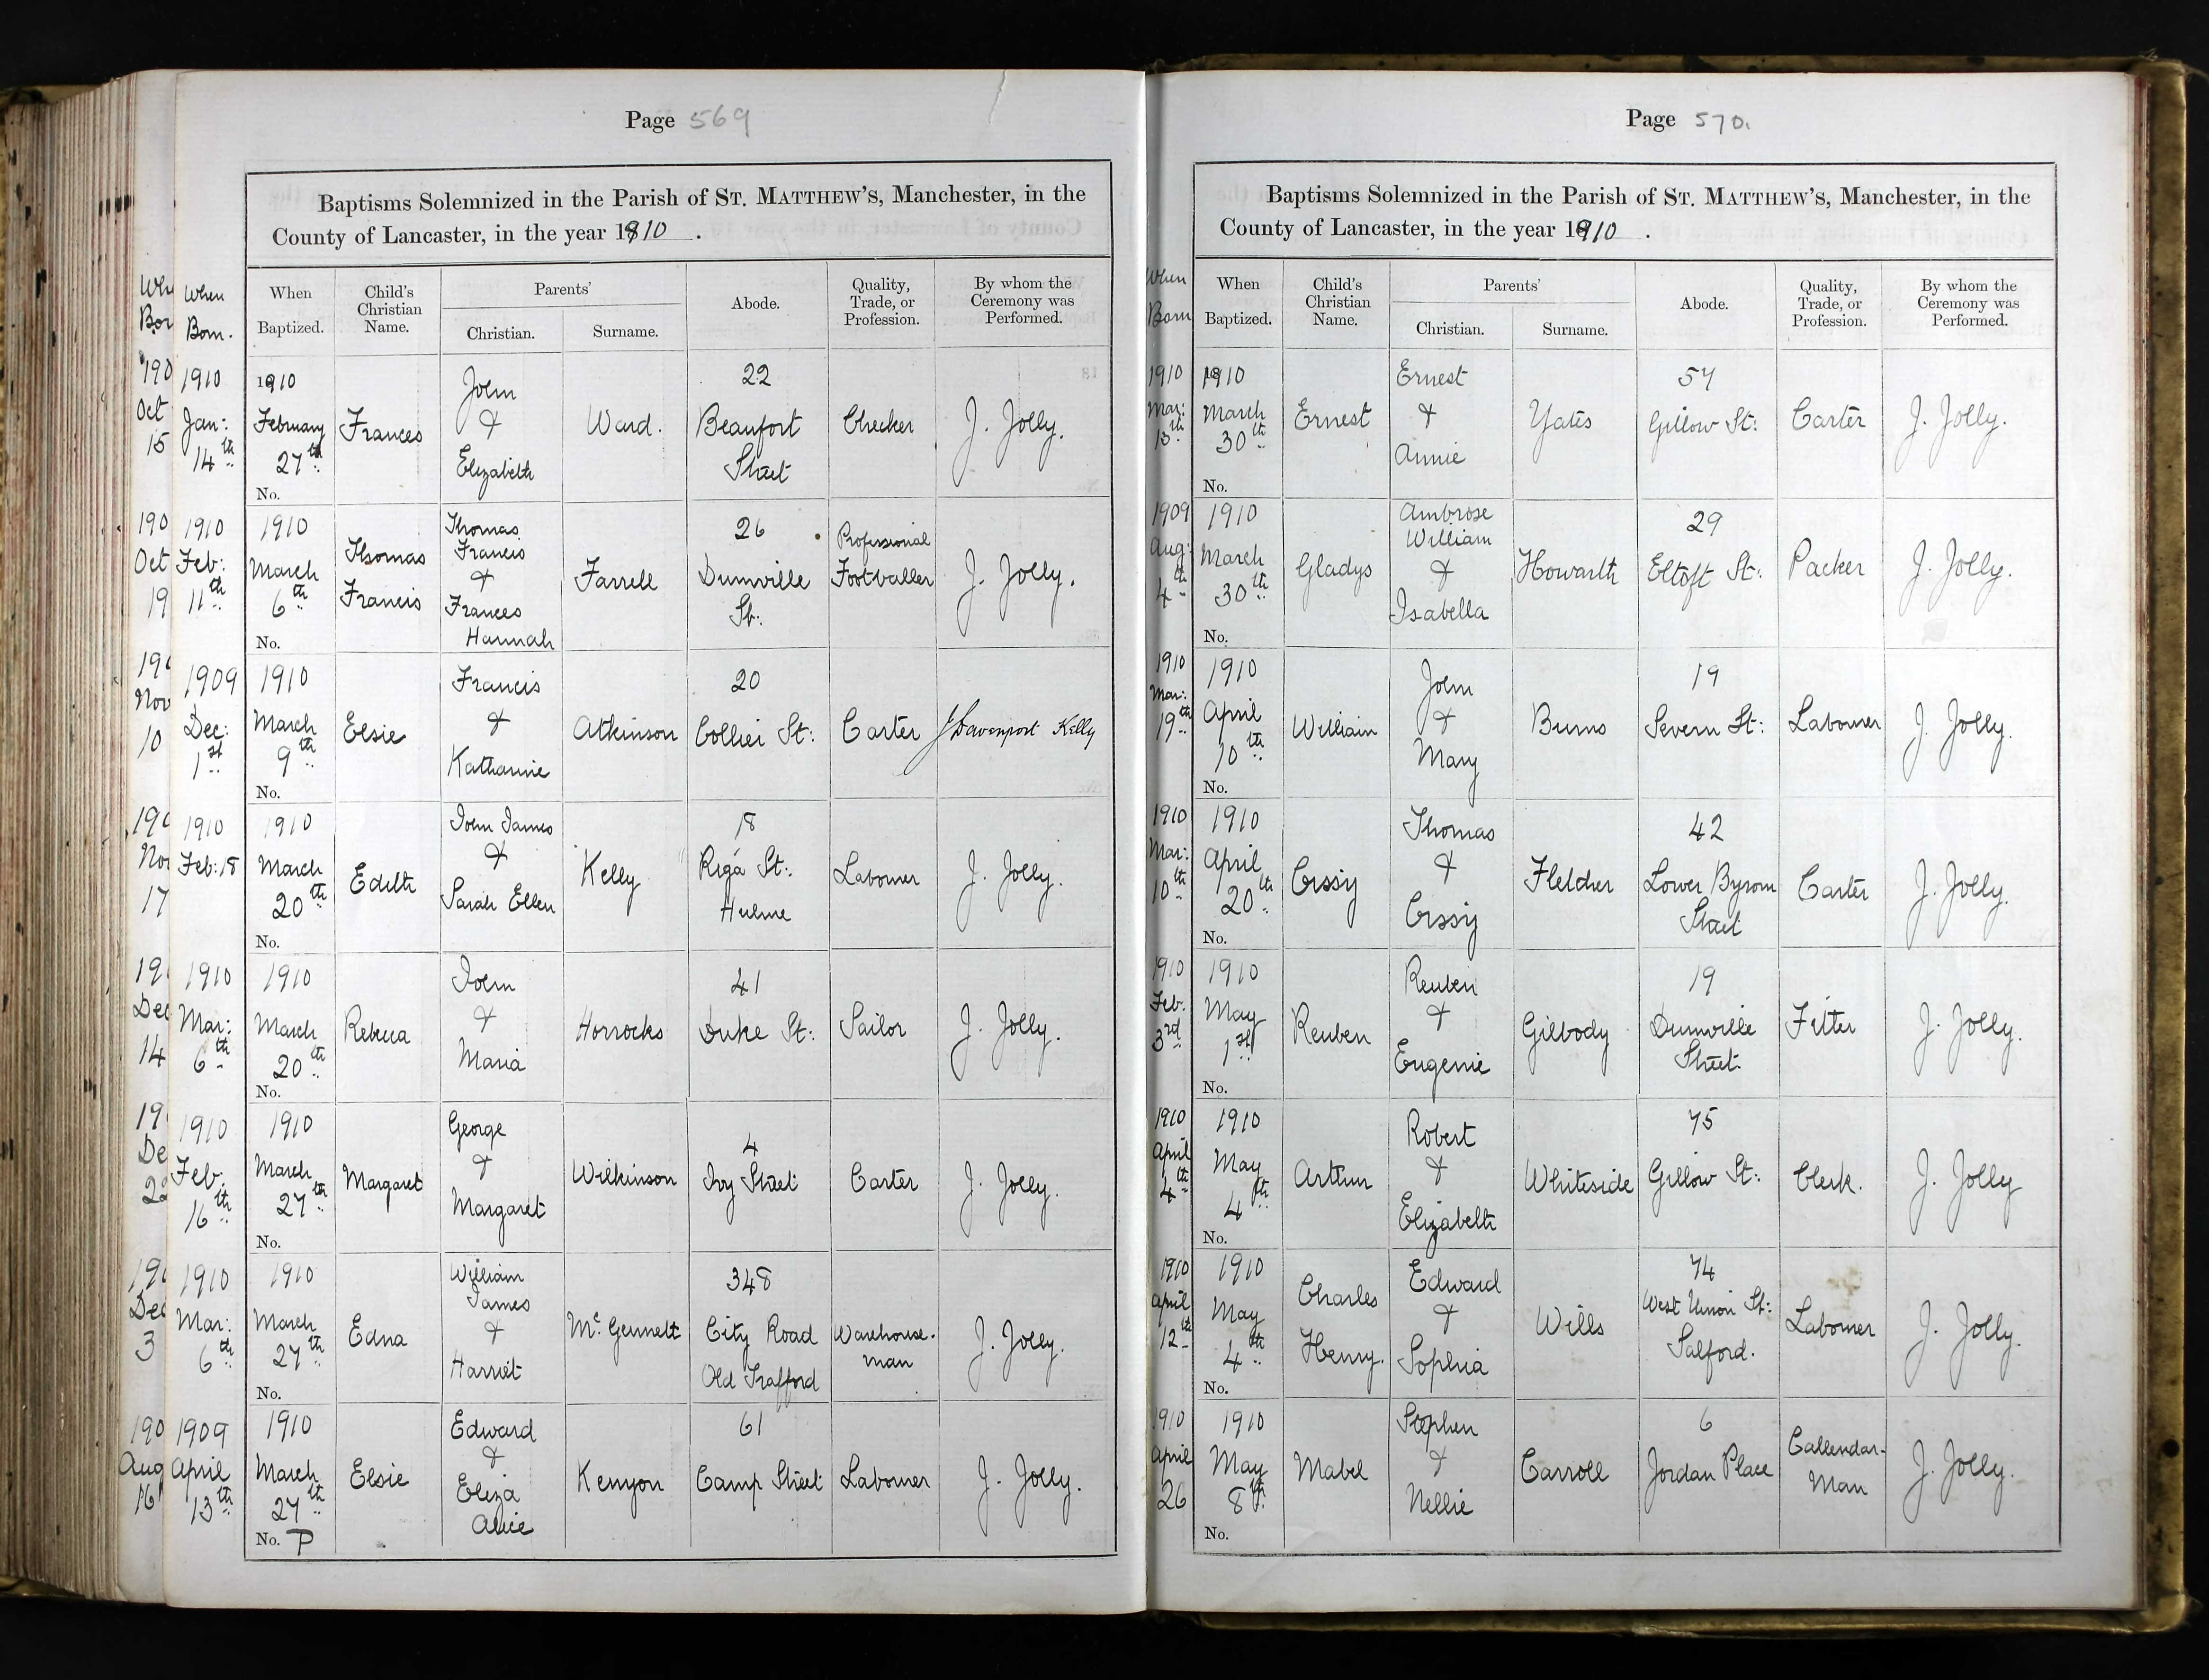 Page 569
Baptisms Solemnized in the Parish of ST. MATTHEW'S, Manchester, in the
County of Lancaster, in the year 1910.
When Born.
When Baptized.
Child's Christian Name.
Parents'
Christian.
Surname.
Abode.
Quality, Trade, or Profession.
By whom the Ceremony was Performed.
1910 Jan: 14th
1910 February 27th
No.
Frances
John & Elizabeth
Ward.
22 Beaufort Street
Checker
J. Jolly.
1910 Feb: 11th
1910 March 6th
No.
Thomas Francis
Thomas Francis & Frances Hannah
Farrell
26 Dumville St:
Professional Footballer
J. Jolly.
1909 Dec: 1st
1910 March 9th
No.
Elsie
Francis & Katharine
Atkinson
20 Collier St:
Carter
J Davenport Kelly
1910 Feb: 18
1910 March 20th
No.
Edith
John James & Sarah Ellen
Kelly
18 Riga St: Hulme
Labourer
J. Jolly.
1910 Mar: 6th
1910 March 20th
No.
Rebecca
John & Maria
Horrocks
41 Duke St:
Sailor
J. Jolly.
1910 Feb. 16th
1910 March 27th
No.
Margaret
George & Margaret
Wilkinson
4 Ivy Street
Carter
J. Jolly.
1910 Mar: 6th
1910 March 27th
No.
Edna
William James & Harriet
Mc. Gennett
348 City Road Old Trafford
Warehouse-man
J. Jolly.
1909 April 13th
1910 March 27th
No. P
Elsie
Edward & Eliza Alice
Kenyon
61 Camp Street
Labourer
J. Jolly.
Page 570.
Baptisms Solemnized in the Parish of ST. MATTHEW'S, Manchester, in the
County of Lancaster, in the year 1910.
When Born
When Baptized.
Child's Christian Name.
Parents'
Christian.
Surname.
Abode.
Quality, Trade, or Profession.
By whom the Ceremony was Performed.
1910 Mar: 13th
1910 March 30th
No.
Ernest
Ernest & Annie
Yates
57 Gillow St:
Carter
J. Jolly.
1909 Aug: 4th
1910 March 30th
No.
Gladys
Ambrose William & Isabella
Howarth
29 Eltoft St:
Packer
J. Jolly.
1910 Mar: 19th
1910 April 10th
No.
William
John & Mary
Burns
19 Severn St:
Labourer
J. Jolly.
1910 Mar: 10th
1910 April 20th
No.
Cissy
Thomas & Cissy
Fletcher
42 Lower Byrom Street
Carter
J. Jolly.
1910 Feb. 3rd
1910 May 1st
No.
Reuben
Reuben & Eugenie
Gilbody
19 Dumville Street
Fitter
J. Jolly.
1910 April 4th
1910 May 4th
No.
Arthur
Robert & Elizabeth
Whiteside
75 Gillow St:
Clerk.
J. Jolly
1910 April 12th
1910 May 4th
No.
Charles Henry.
Edward & Sophia
Wills
74 West Union St: Salford.
Labourer
J. Jolly.
1910 April 26
1910 May 8th
No.
Mabel
Stephen & Nellie
Carroll
6 Jordan Place
Callendar-Man
J. Jolly.